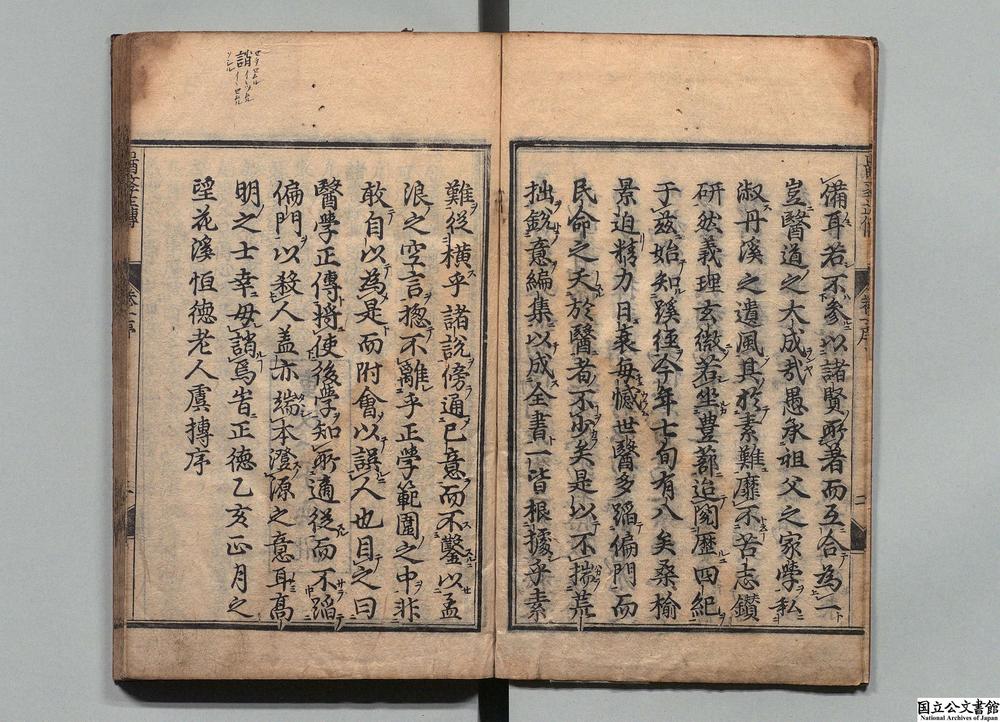 備耳若不參以諸賢所著而互合為一
豈醫道之大成哉愚承祖父之家學私
淑丹溪之遺風其於素難靡不苦志鑽
研然義理玄微若坐豊蔀迨閱歷四紀
于茲始知蹊徑今年七旬有八矣桑榆
景迫精力日衰每憾世醫多蹈偏門而
民命之夭於醫者不少矣是以不揣荒
拙銳意編集以成全書一皆根據乎素
難從橫乎諸說傍通已意而不鑿以孟
浪之空言揔不離乎正學範圍之中非
敢自以為是而附會以誤人也目之曰
醫學正傳将使後學知所適從而不蹈
偏門以殺人盖亦端本澄源之意耳髙
明之士幸毋誚焉旹正德乙亥正月之
望花溪恒德老人虞摶序
誚
醫學正傳
卷一序
二
醫學正傳
卷一序
三
国立公文書館
National Archives of Japan